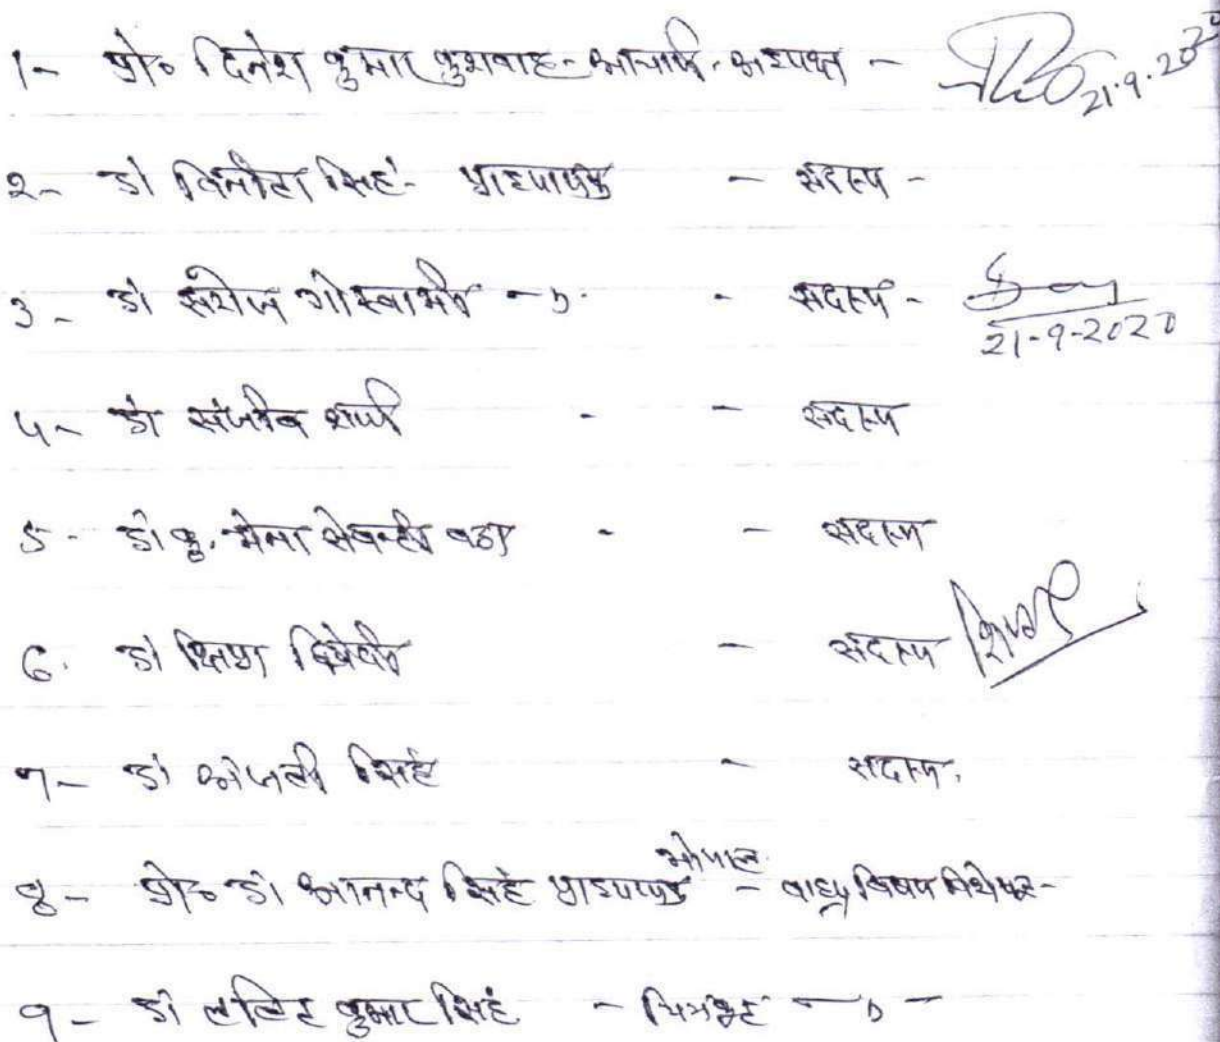 1- प्रो० दिनेश कुमार कुशवाह - आचार्य - अध्यक्ष - 21.9.2020
2- डॉ विनीता सिंह - प्राध्यापक - सदस्य -
3- डॉ सरोज गोस्वामी -〃- - सदस्य - 21-9-2020
4- डॉ संजीव शर्मा - - सदस्य
5- डॉ कु. मेना - - सदस्य
6. डॉ क्षिप्रा द्विवेदी - सदस्य
7- डॉ अंजली सिंह - सदस्य.
8- प्रो० डॉ आनन्द सिंह प्राध्यापक भोपाल - वाह्य विषय विशेषज्ञ -
9- डॉ ललित कुमार सिंह - चित्रकूट -〃-